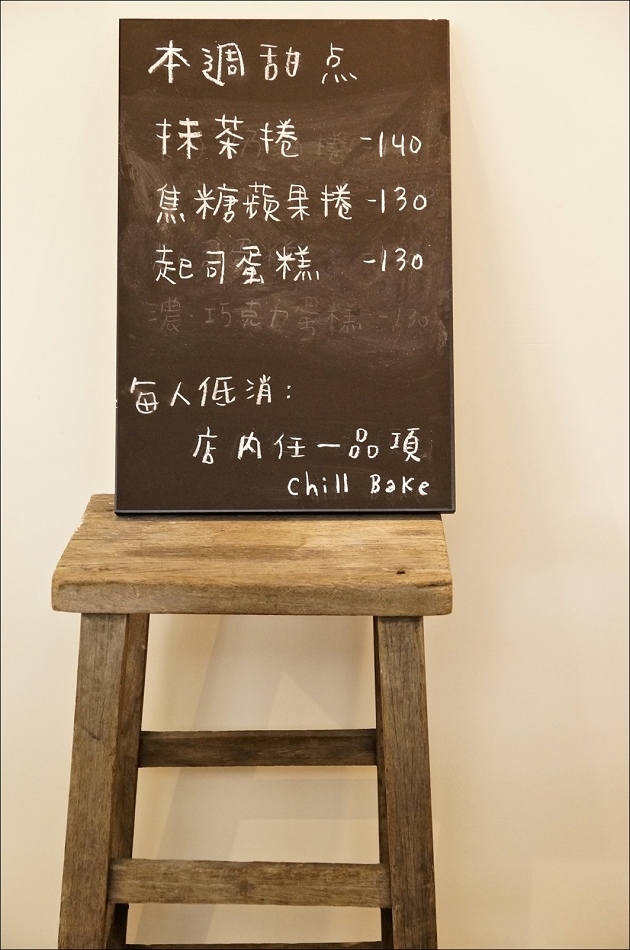 本週甜点
抹茶捲 -140
焦糖蘋果捲 -130
起司蛋糕 -130
濃.巧克力蛋糕 -130
每人低消:
店內任一品項
Chill Bake